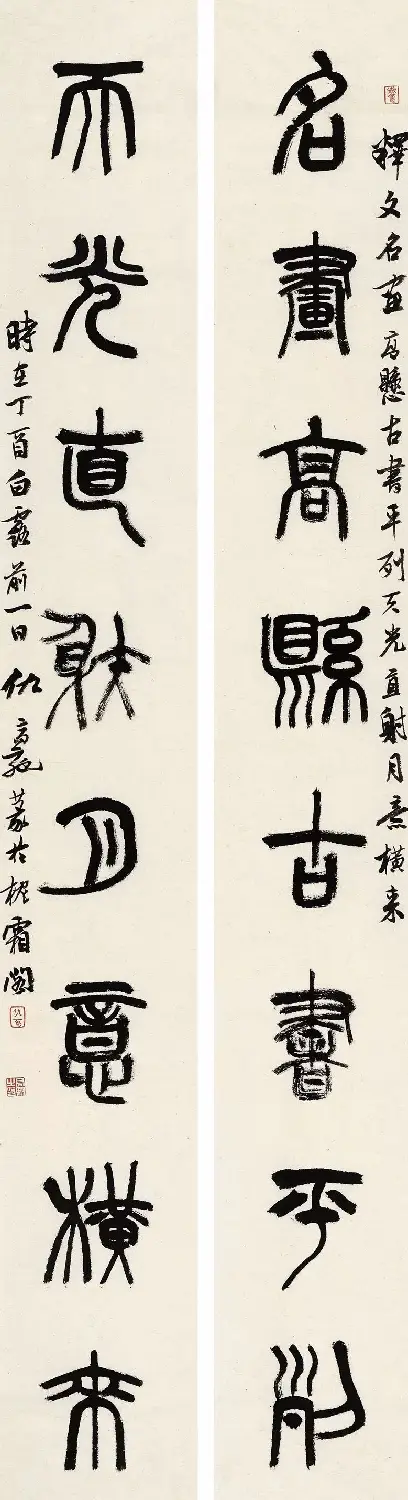 名畫高縣古書平列
釋文名畫高懸古書平列天光直射月意橫来
天光直射月意橫来
時在丁酉白露前一日仇高乾篆於
霜閣